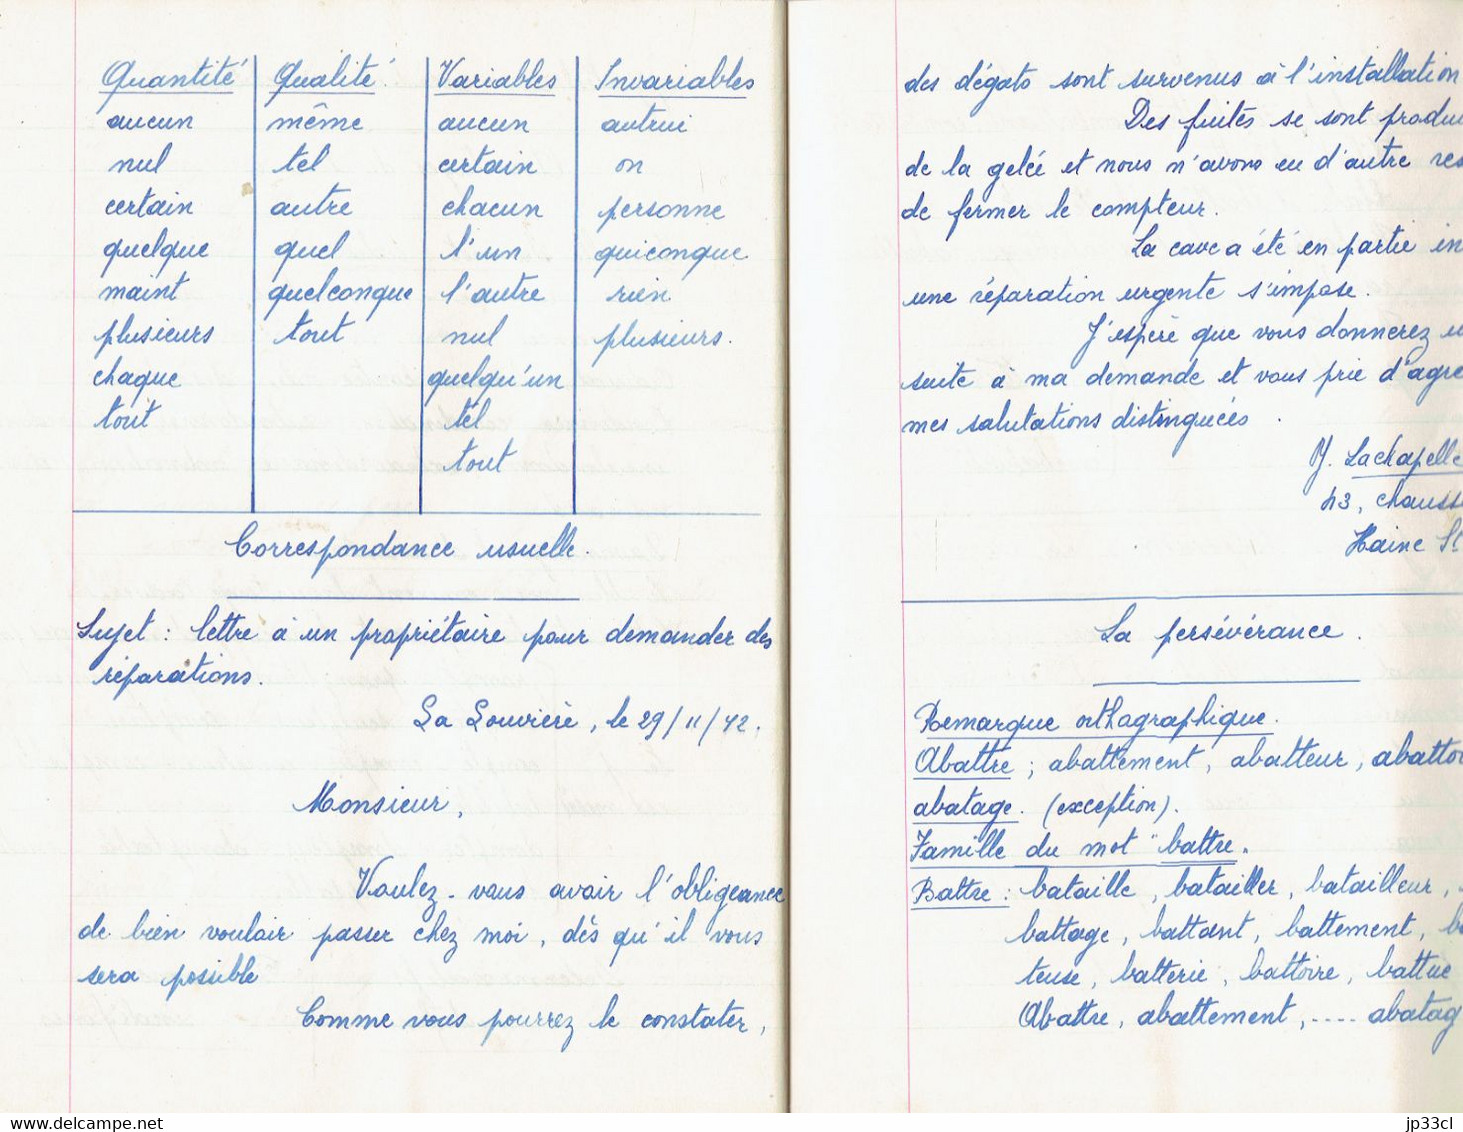 Quantité Qualité Variables Invariables
aucun même aucun autrui
nul tel certain on
certain autre chacun personne
quelque quel l'un quiconque
maint quelconque l'autre rien
plusieurs tout nul plusieurs.
chaque quelqu'un
tout tel
tout
Correspondance usuelle.
Sujet : lettre à un propriétaire pour demander des
réparations.
La Louvière, le 29/11/42.
Monsieur,
Voulez-vous avoir l'obligeance
de bien vouloir passer chez moi, dès qu'il vous
sera possible
Comme vous pourrez le constater,
des dégats sont survenus à l'installation
Des fuites se sont produi
de la gelée et nous n'avons eu d'autre res
de fermer le compteur.
La cave a été en partie in
une réparation urgente s'impose.
J'espère que vous donnerez u
suite à ma demande et vous prie d'agré
mes salutations distinguées.
Y. Lachapelle
43, chaussé
Haine St
La persévérance.
Remarque orthographique.
Abattre ; abattement, abatteur, abattoi
abatage. (exception).
Famille du mot "battre.
Battre : bataille, batailler, batailleur,
battage, battant, battement, ba
teuse, batterie, battoire, battue
Abattre, abattement, .... abatag
jp33cl